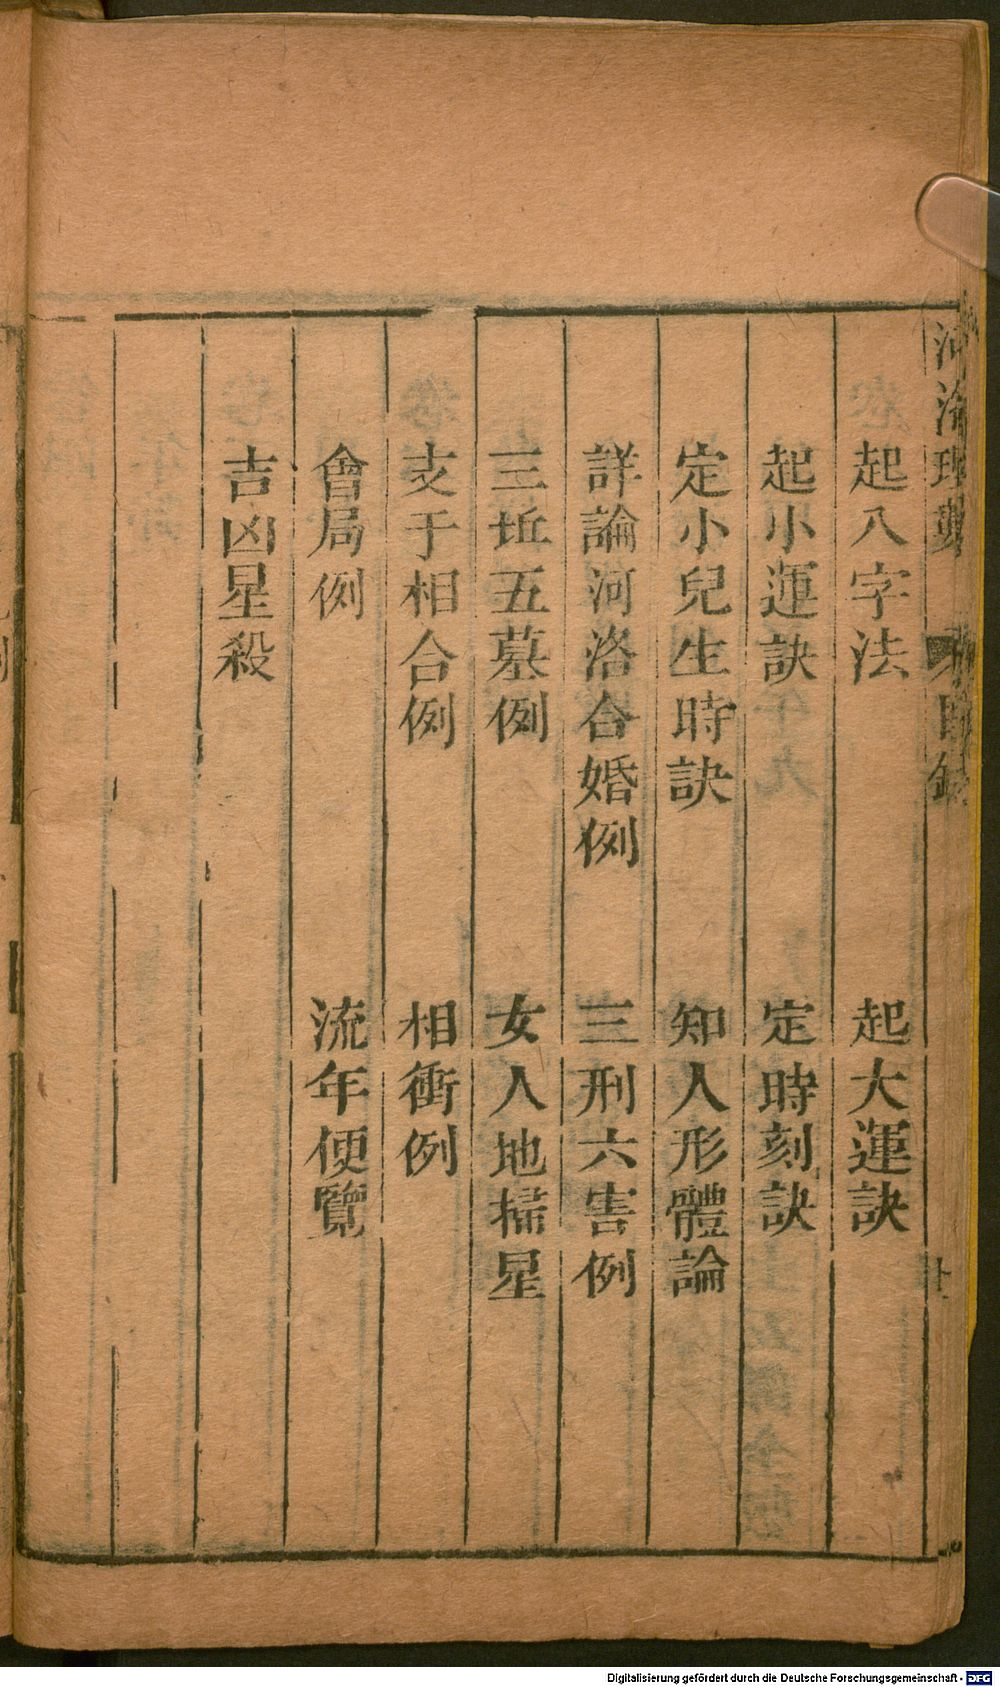 河洛理數
目錄
起八字法 起大運訣
起小運訣 定時刻訣
定小兒生時訣 知人形體論
詳論河洛合婚例 三刑六害例
三坵五墓例 女人地掃星
支于相合例 相衝例
會局例 流年便覽
吉凶星殺
Digitalisierung gefördert durch die Deutsche Forschungsgemeinschaft - DFG